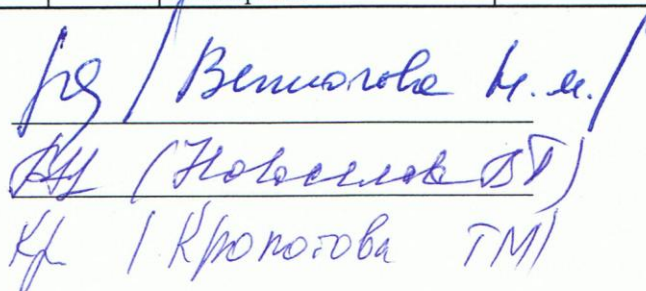 / Ветлотова М.м./
(Новоселов ВП)
Кр / Кропотова ТМ/